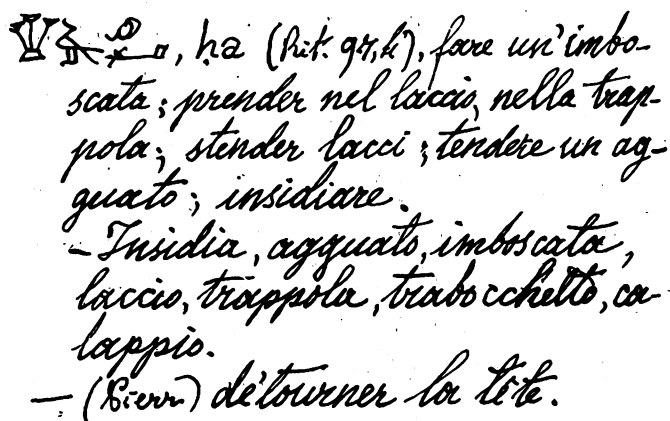 , ha (Rit. 97, k), fare un'imbo-
scata; prender nel laccio, nella trap-
pola; stender lacci; tendere un ag-
guato; insidiare.
- Insidia, agguato, imboscata,
laccio, trappola, trabocchetto, ca-
lappio.
- (Pierr) détourner la tête.